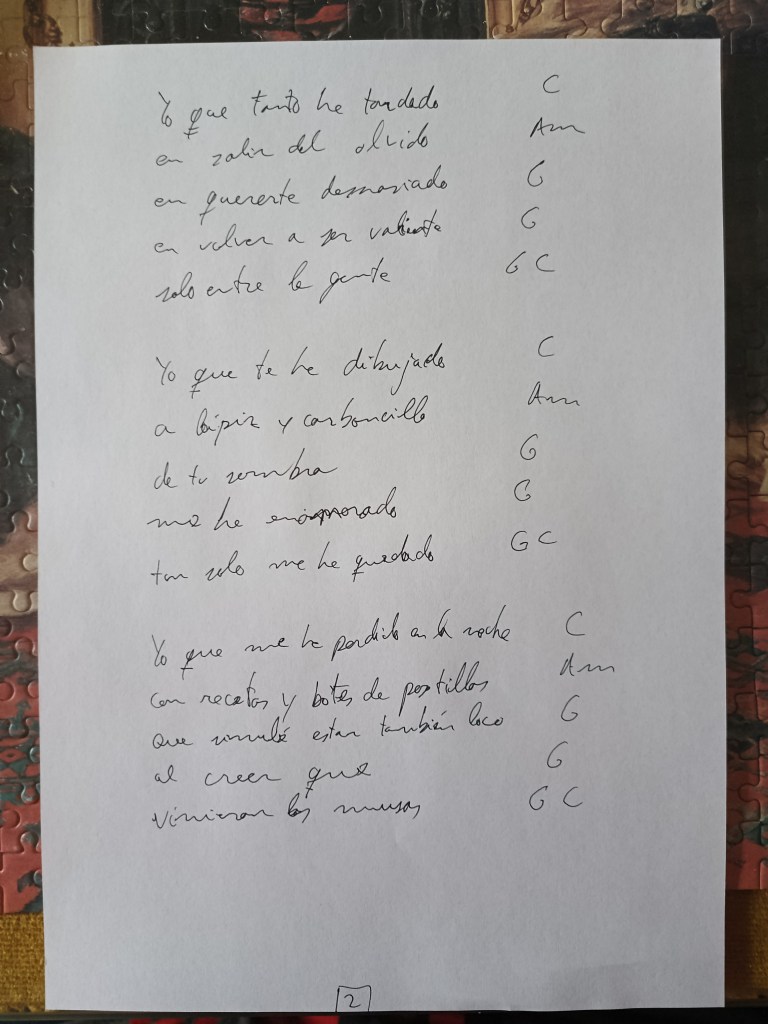 Yo que tanto he tardado C
en salir del olvido Am
en quererte demasiado G
en volver a ser valiente G
solo entre la gente G C
Yo que te he dibujado C
a lápiz y carboncillo Am
de tu sombra G
me he enamorado G
tan solo me he quedado G C
Yo que me he perdido en la noche C
con recetas y botes de pastillas Am
que simulé estar también loco G
al creer que G
vinieran las musas G C
2